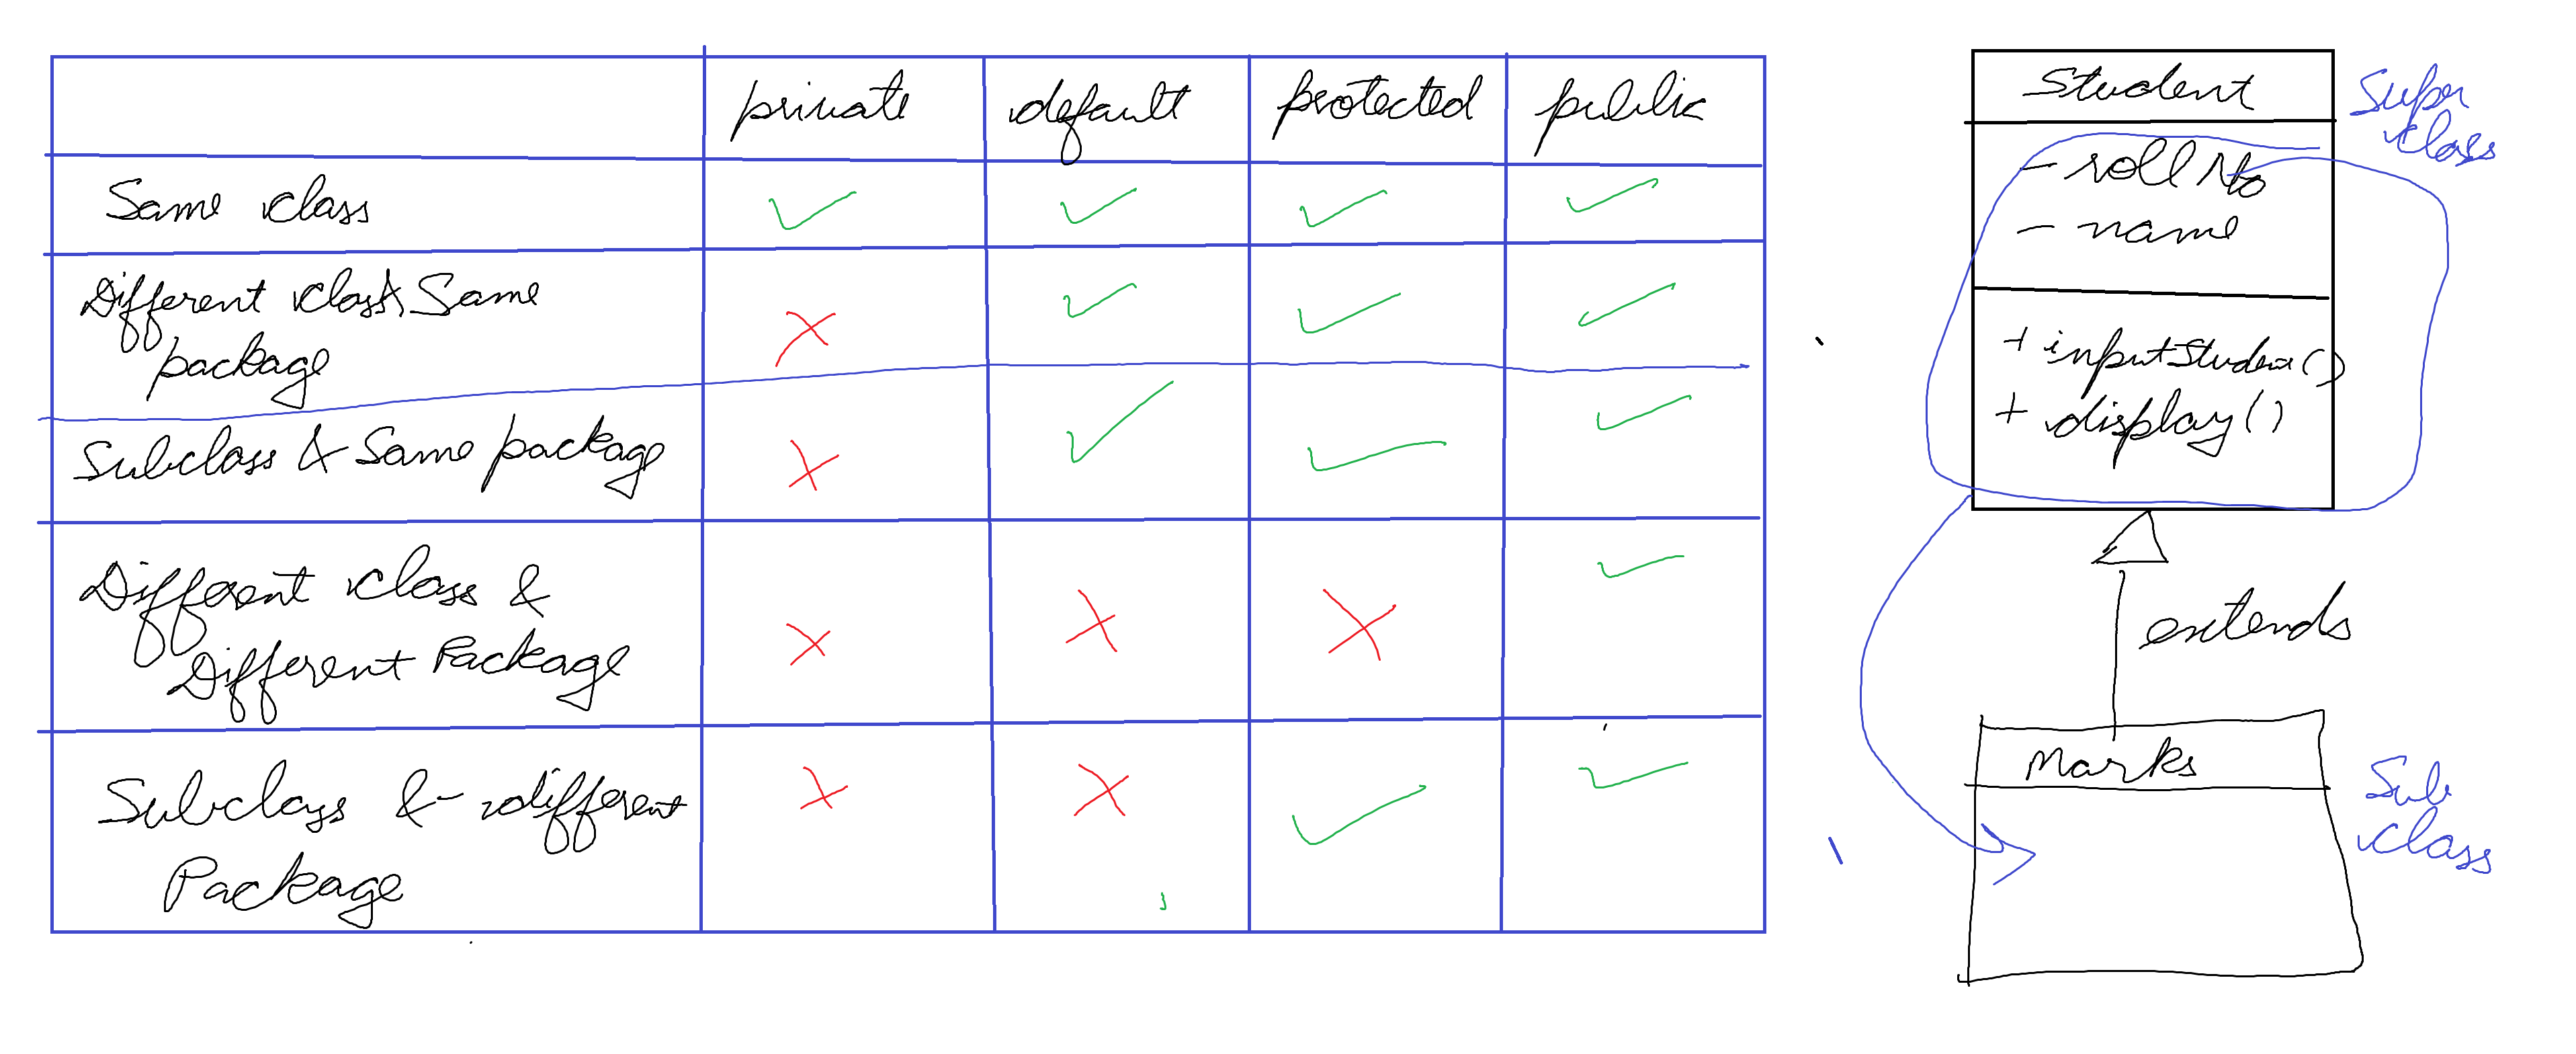 private default protected public
Same class ✓ ✓ ✓ ✓
Different class & Same
package ✗ ✓ ✓ ✓
Subclass & Same package ✗ ✓ ✓ ✓
Different class &
Different Package ✗ ✗ ✗ ✓
Subclass & different
Package ✗ ✗ ✓ ✓
Student
Super
class
- roll No
- name
+ inputStudent()
+ display()
extends
Marks
Sub
class